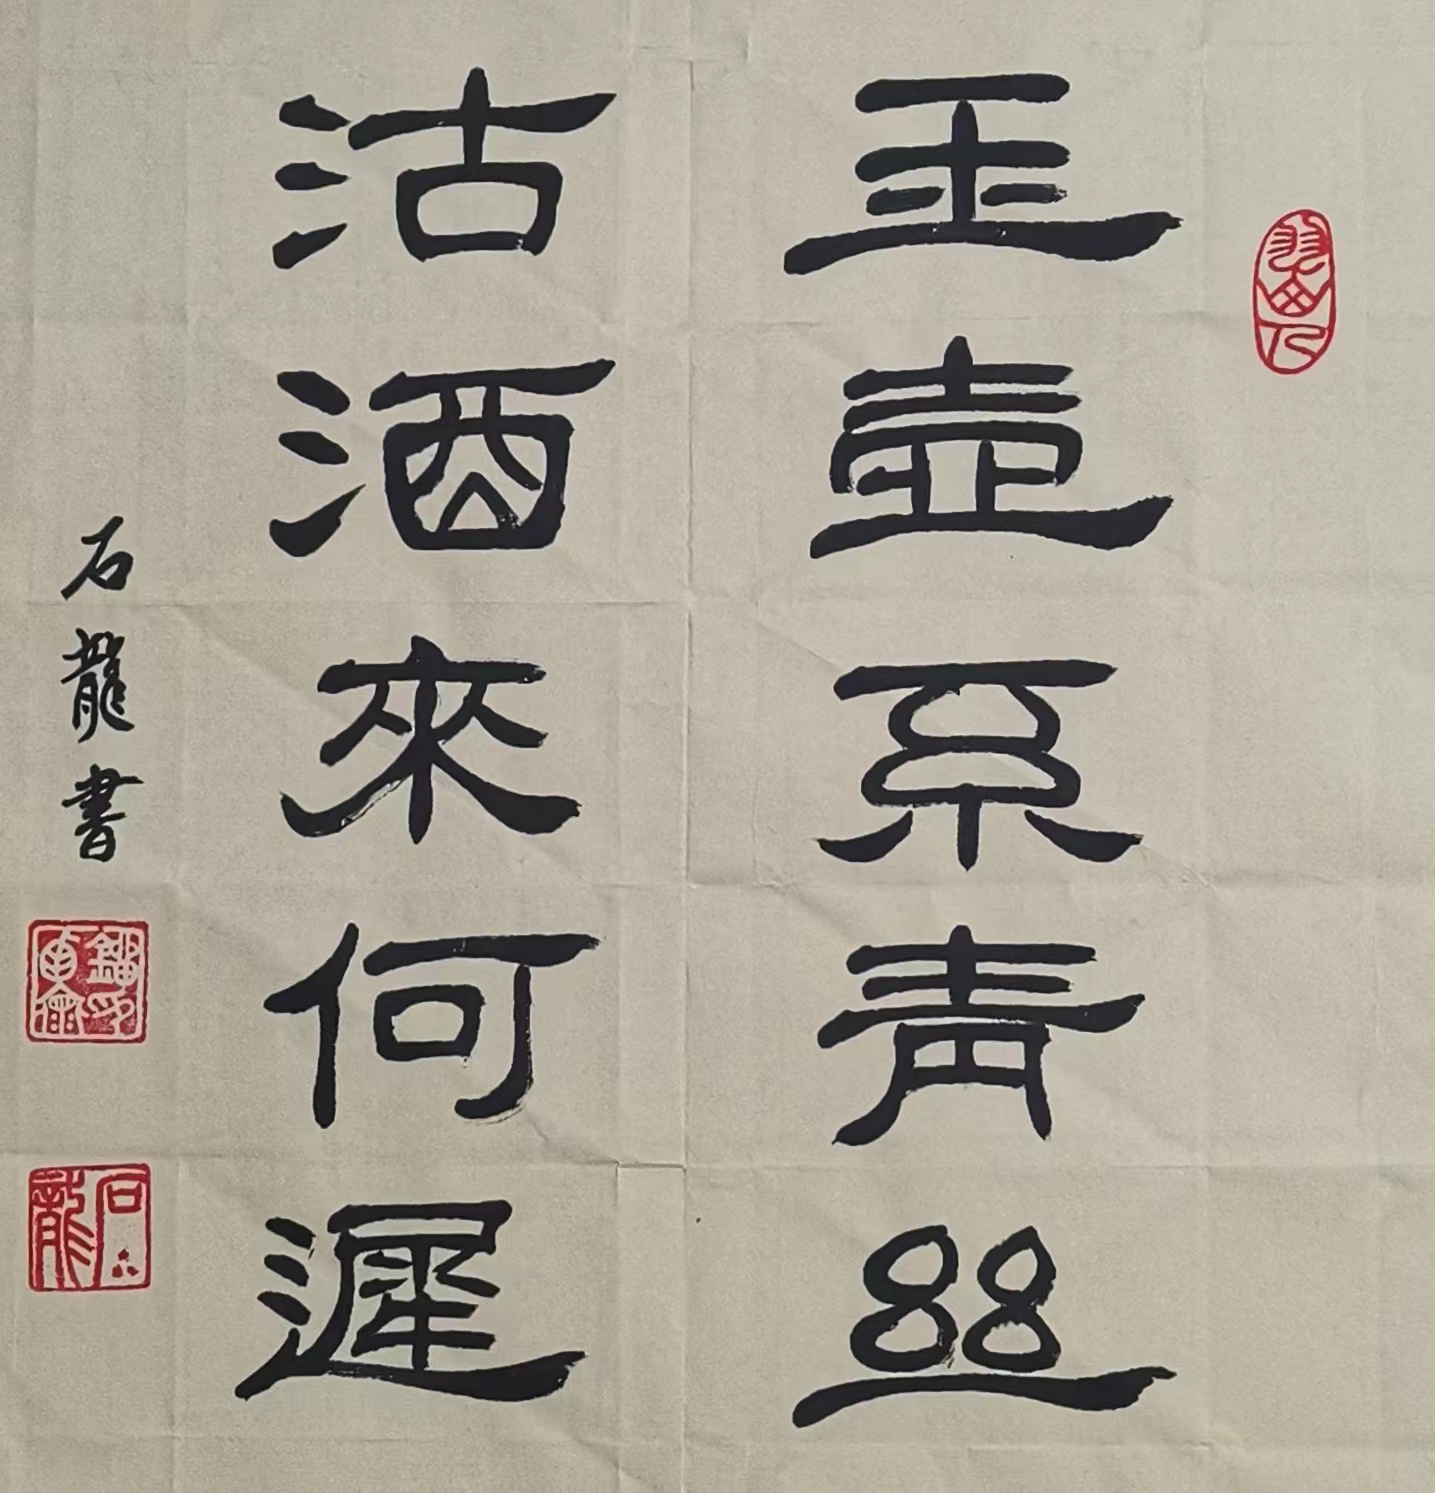 玉壺系青丝
沽酒來何遲
石龍書
石龍